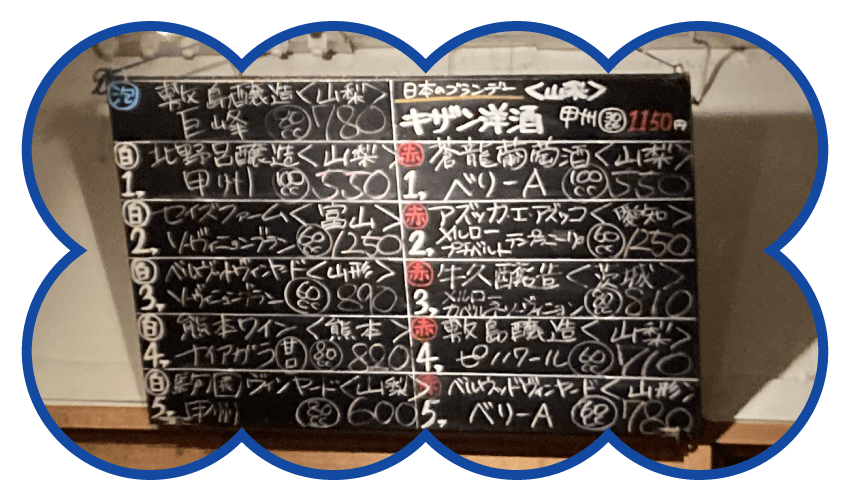 泡 敷島醸造<山梨>
巨峰 780
日本のブランデー <山梨>
キザン洋酒 甲州 1150円
白 北野呂醸造<山梨>
1. 甲州 100cc 550
赤 蒼龍葡萄酒<山梨>
1. ベリーA 100cc 550
白 セイズファーム<富山>
2. ソーヴィニヨンブラン 60cc 1250
赤 アズッカエアズッコ<愛知>
2. メルロー
プチベルド テンプラニーリョ 60cc 1250
白 ベルウッドヴィンヤード<山形>
3. ソーヴィニヨンブラン 60cc 890
赤 牛久醸造<茨城>
3. メルロー
カベルネソーヴィニョン 810
白 熊本ワイン<熊本>
4. ナイアガラ 甘口 80cc 820
赤 敷島醸造<山梨>
4. ピノノワール 60cc 710
白 駒園ヴィンヤード<山梨>
5. 甲州 80cc 600
赤 ベルウッドヴィンヤード<山形>
5. ベリーA 60cc 780